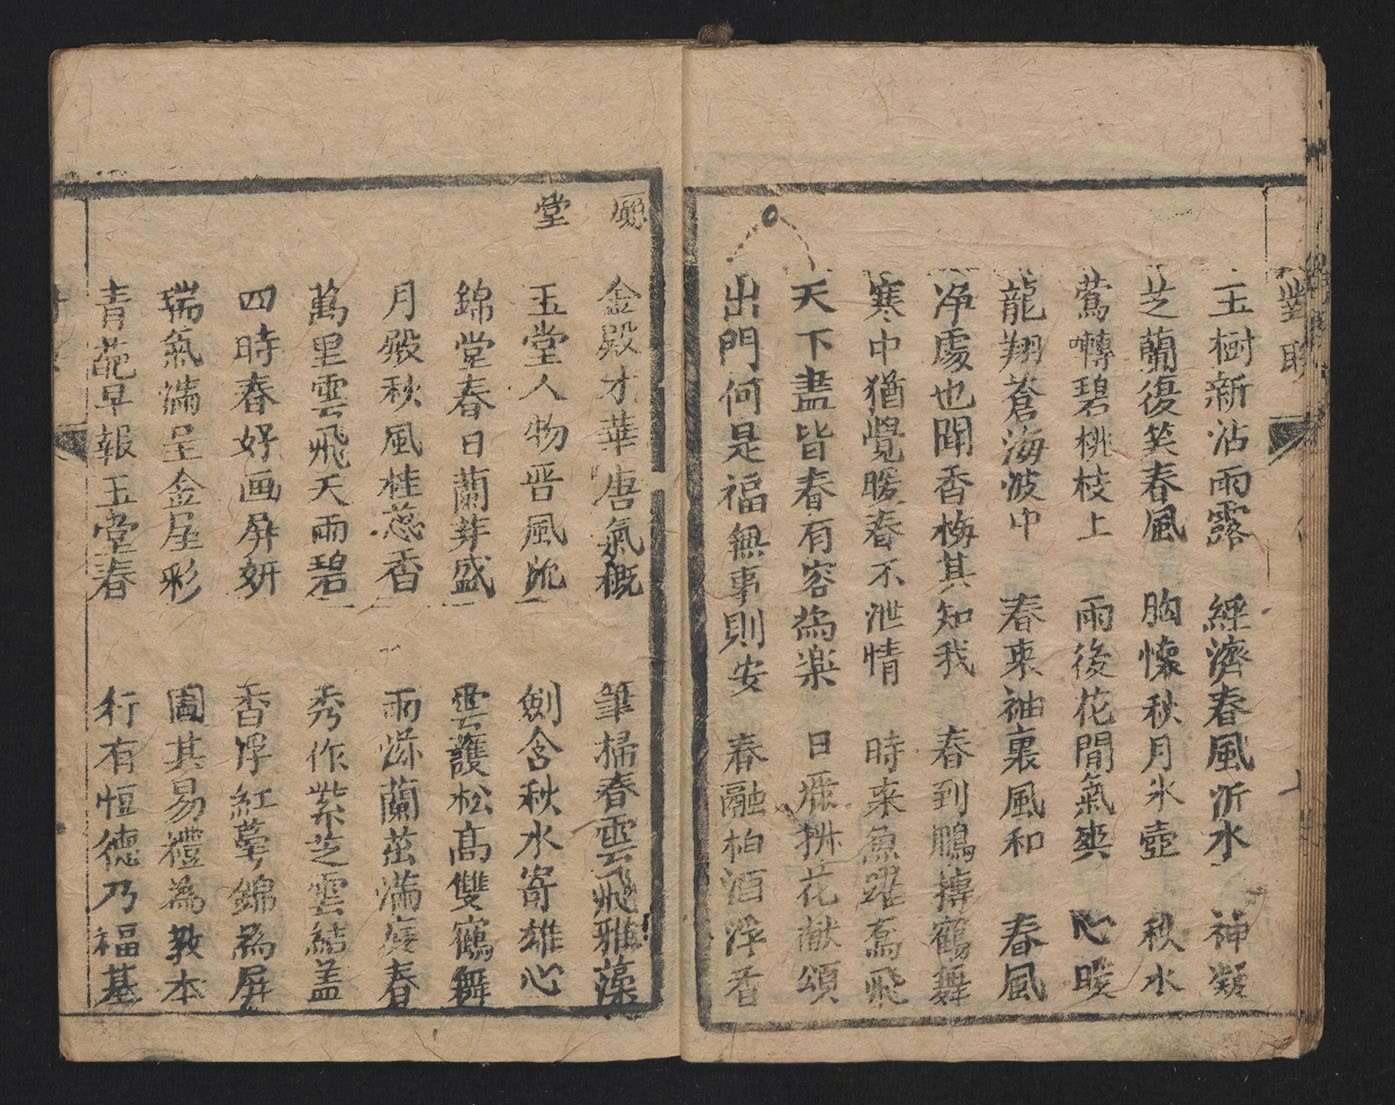 對聯
玉樹新沾雨露 經濟春風沂水 神凝
芝蘭復笑春風 胸懷秋月氷壺 秋水
鶯囀碧桃枝上 雨後花間氣爽 心暖
龍翔蒼海波中 春來袖裏風和 春風
净處也聞香梅其知我 春到鵬摶鶴舞
寒中猶覺暖春不泄情 時来魚躍鳶飛
天下盡皆春有容為楽 日麗椒花献頌
出門何是福無事則安 春融柏酒浮香
廳堂
金殿才華唐氣概 筆掃春雲飛雅藻
玉堂人物晋風流 劍含秋水寄雄心
錦堂春日蘭芽盛 雲護松高雙鶴舞
月殿秋風桂蕊香 雨添蘭茁満庭春
萬里雲飛天雨碧 秀作紫芝雲結盖
四時春好画屏妍 香浮紅萼錦為屏
瑞氣満呈金屋彩 圖其易禮為教本
青苑早報玉堂春 行有恒德乃福基